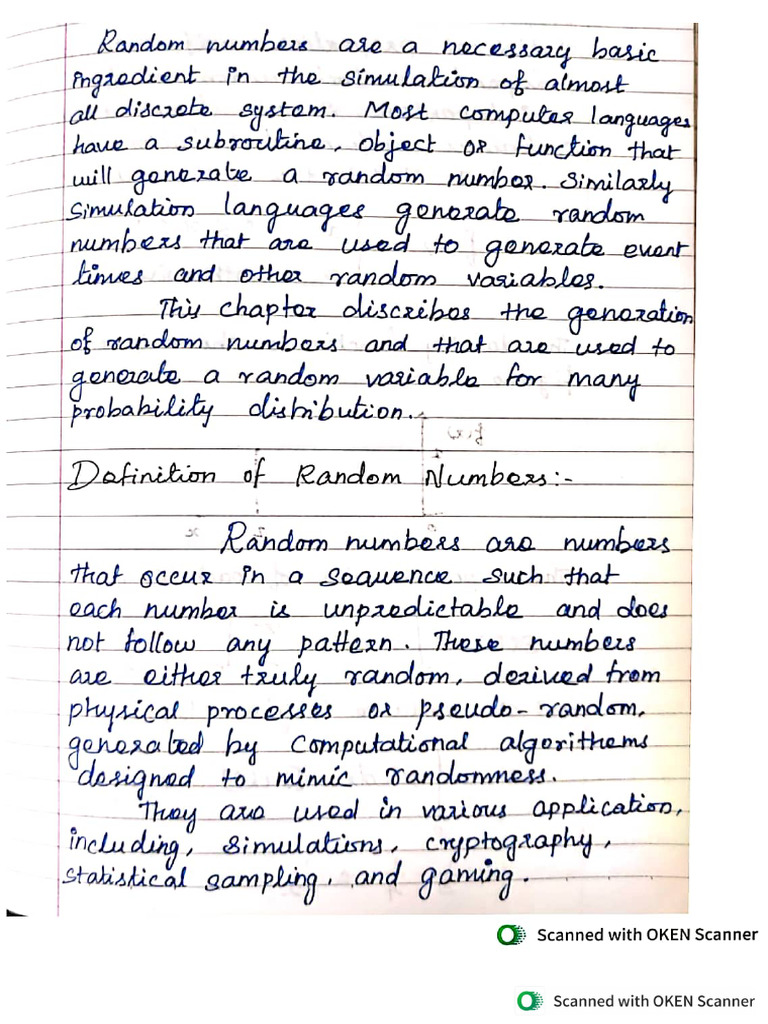 Random numbers are a necessary basic
ingredient in the simulation of almost
all discrete system. Most computer languages
have a subroutine, object or function that
will generate a random number. Similarly
simulation languages generate random
numbers that are used to generate event
times and other random variables.
This chapter discribes the generation
of random numbers and that are used to
generate a random variable for many
probability distribution.
Definition of Random Numbers:-
Random numbers are numbers
that occur in a sequence such that
each number is unpredictable and does
not follow any pattern. These numbers
are either truly random, derived from
physical processes or pseudo-random,
generated by computational algorithems
designed to mimic randomness.
They are used in various application,
including, simulations, cryptography,
statistical sampling, and gaming.
Scanned with OKEN Scanner
Scanned with OKEN Scanner